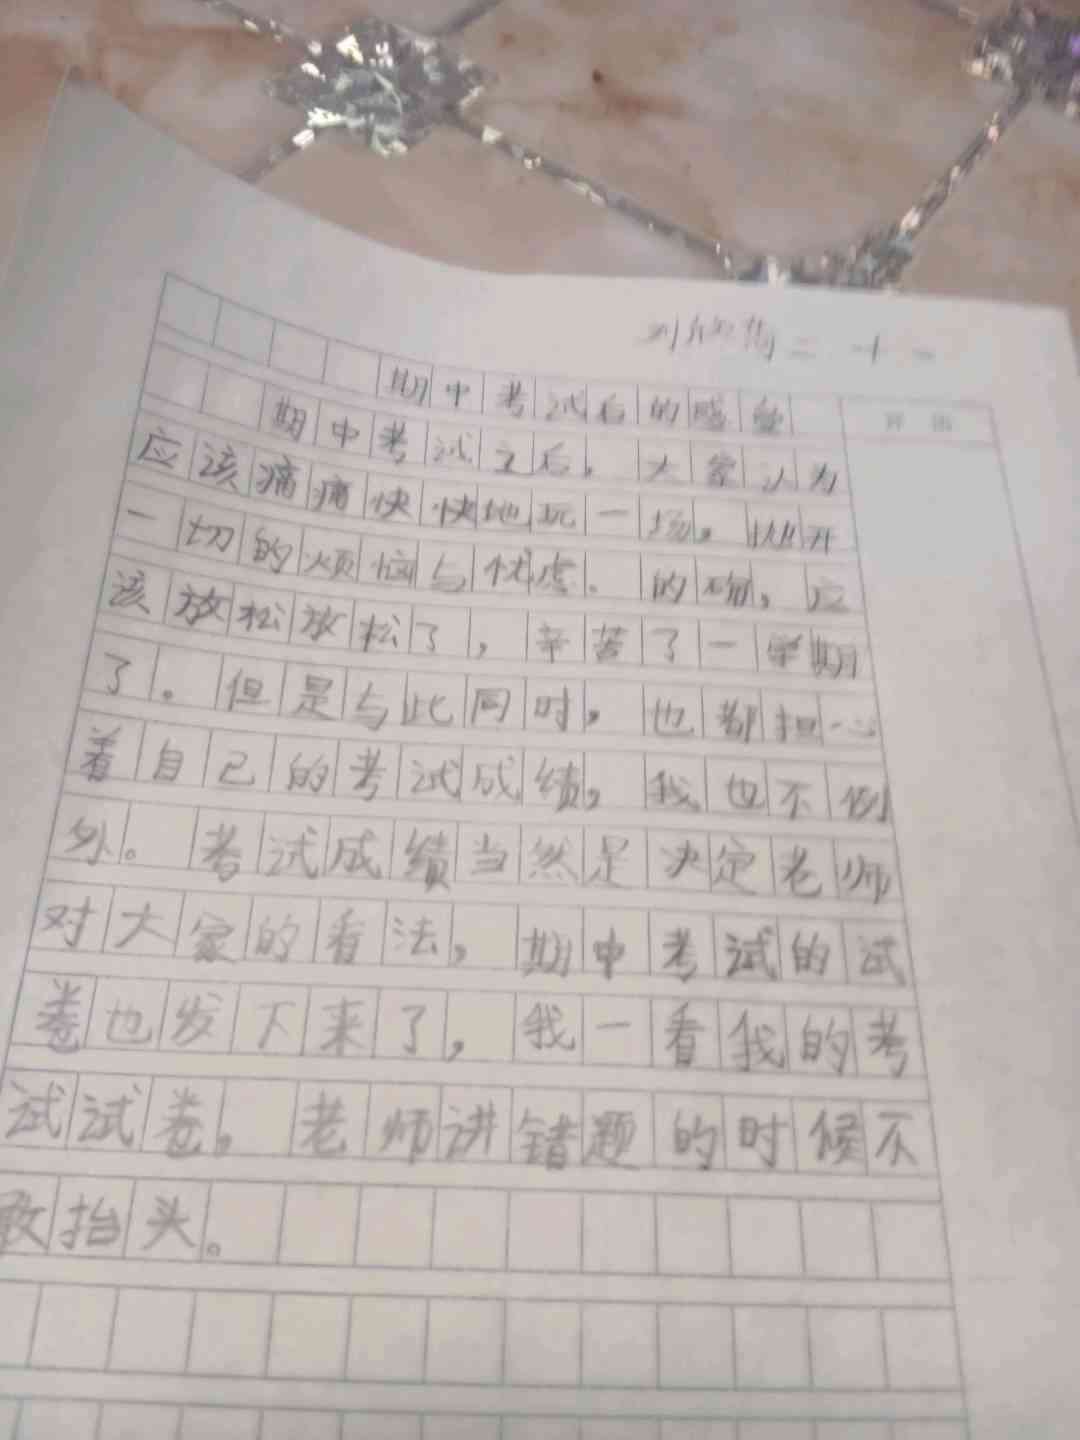 二 十一
期中考试后的感受
评语
期中考试之后，大家认为
应该痛痛快快地玩一场，抛开
一切的烦恼与忧虑。的确，应
该放松放松了，辛苦了一学期
了。但是与此同时，也都担心
着自己的考试成绩，我也不例
外。考试成绩当然是决定老师
对大家的看法，期中考试的试
卷也发下来了，我一看我的考
试试卷，老师讲错题的时候不
敢抬头。